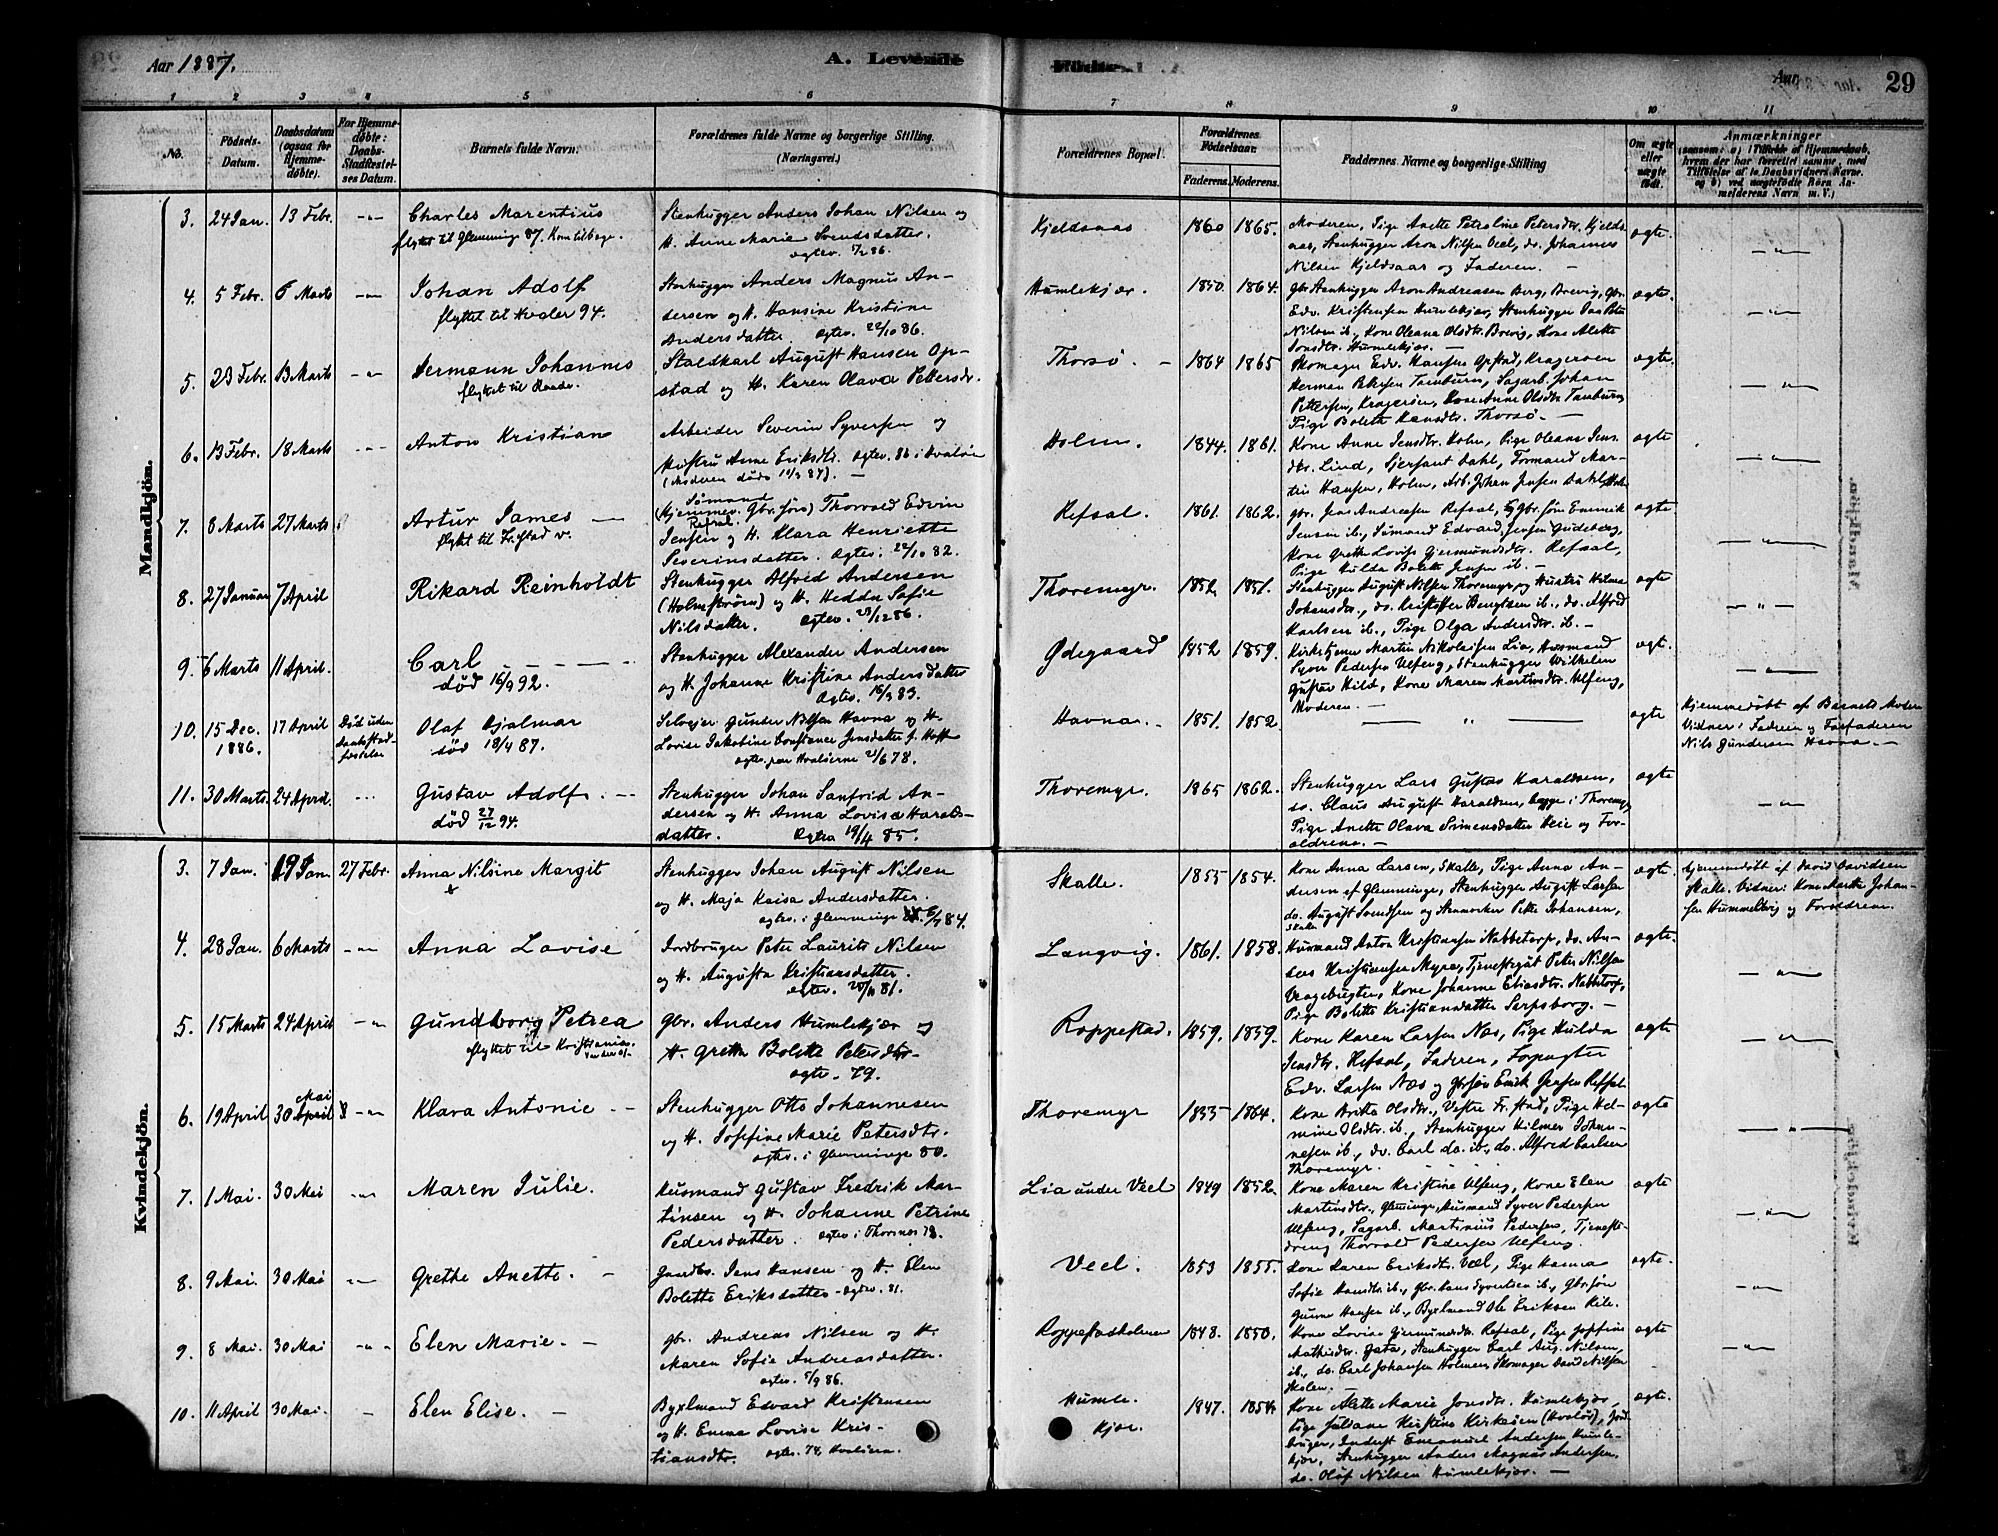 Aar 1887.
A. Levende
Fødte.
Aar
29
1 2 3 4 5 6 7 8 9 10 11
No.
Födsels-Datum.
Daabsdatum (ogsaa for Hjemmedøbte).
For Hjemmedøbte: Daabs-Stadfæstelses Datum.
Barnets fulde Navn.
Forældrenes fulde Navne og borgerlige Stilling.
(Næringsvei.)
Forældrenes Bopæl.
Forældrenes Fødselsaar.
Faderens. Moderens.
Faddernes Navne og borgerlige Stilling
Om ægte eller uægte født.
Anmærkninger
(saasom: a) i Tilfælde af Hjemmedaab, hvem der har forrettet samme, med Tilføielse af to Daabsvidners Navne, og b) ved uægtefødte Børn Anmelderens Navn m. V.)
Mandkjön.
3. 24 Jan. 13 Febr. -"- Charles Marentius
flyttet til Glemminge 87. Kom tilbage.
Stenhugger Anders Johan Nilsen og
H. Anne Marie Svendsdatter.
ægtev. 7/2 86.
Kjeldsaas 1860 1865.
Moderen, Pige Anette Petroline Petersdtr. Kjelds-
aas, Stenhugger Aron Nilsen Veel, do. Johannes
Nilsen Kjeldsaas og Faderen. —
ægte. -"-
4. 5 Febr. 6 Marts -"- Johan Adolf
flyttet til Hvaler 94.
Stenhugger Anders Magnus An-
dersen og H. Hansine Kristine
Andersdatter ægtev. 22/10 86.
Humlekjær. 1850. 1864.
Gbr. Stenhugger Aron Andreasen Berg, Brevig, Gbr.
Edv. Kristensen Humlekjær, Stenhugger
Nilsen ib., Kone Oleana Olsdtr. Brevig, Kone Alette
Jonsdtr. Humlekjær. —
ægte. -"-
5. 23 Febr. 13 Marts -"- Hermann Johannes
flyttet til Raade.
Staldkarl August Hansen Op-
stad og H. Karen Olava Pettersdr.
Thorsø. — 1864 1865
Skomager Edv. Hansen Opstad, Kragerøen
Herman Petersen Tamburn, Sagarb. Johan
Pettersen, Kragerøen, Kone Anne Olsdtr. Tamburn
Pige Bolette Hansdtr. Thorsø. —
ægte. -"-
6. 13 Febr. 18 Marts -"- Anton Kristian
Arbeider Severin Syversen og
Hustru Anne Eriksdtr. ægtev. 86 i Hvaløer
(Moderen døde 10/9 87). —
Holm. 1844. 1861.
Kone Anne Jensdtr. Holm, Pige Oleane Jens-
dtr. Lind, Sjersant Dahl, Formand Mar-
tin Hansen, Holm, Arb. Johan Jensen Dahl,
ægte -"-
7. 8 Marts 27 Marts Artur James —
flyttet til Fr.stad v.
Sømand
(Hjemmev. Gbr. søn) Thorvald Edvin
Refsal.
Jensen og H. Klara Henriette
Severinsdatter. Ægtev. 22/10 82.
Refsal. 1861. 1862.
Gbr. Jens Andreasen Refsal, Gbr. søn Emmik
Jensen ib., Sømand Edvard Jensen Gudeberg,
Kone Grethe Lovise Gjermundsdtr. Refsal,
Pige Hilda Bolette Jensen ib. —
ægte -"-
8. 27 Januar 7 April Rikard Reinholdt
Stenhugger Alfred Andersen
(Holmstrøm) og H. Hedda Sofie
Nilsdatter. ægtev. 29/12 86.
Thoremyr. 1852 1851.
Stenhugger August Nilsen Thoremyr og Hustru Helma
Johansdtr., do. Kristoffer Bengtsen ib., do. Alfred
Karlsen ib., Pige Olga Andersdtr. ib. —
ægte -"-
9. 6 Marts 11 April. Carl — — —
død 16/9 92.
Stenhugger Alexander Andersen
og H. Johanne Kristine Andersdatter
Ægtev. 16/9 83.
Ødegaard 1852 1859.
Kirketjener Martin Nikolaisen Lia, Husmand
Syver Pedersen Ulfeng, Stenhugger Wilhelm
Gustav Kile, Kone Maren Martinsdtr. Ulfeng,
Moderen. —
ægte. -"-
10. 15 Dec. 1886. 17 April Død uden Daabstad-fæstelse Olaf Hjalmar
død 18/4 87.
Selveier Gunder Nilsen Havna og H.
Lovise Jakobine Constance Jensdatter f. Hoff
ægtev. paa Hvaløerne 21/6 78.
Havna. 1851. 1852. — " — ægte
Hjemmedøbt af Barnets Moder
Vidner: Faderen og Farfaderen
Nils Gundersen Havna —
11. 30 Marts. 24 April. Gustav Adolf. —
død 27/12 94.
Stenhugger Johan Sanfrid An-
dersen og H. Anna Lovise Haralds-
datter. Ægtev 19/4 85.
Thoremyr. 1865 1862.
Stenhugger Lars Gustav Haraldsen,
do. Claus August Haraldsen, begge i Thoremyr
Pige Anette Olava Simensdatter Veie og For-
ældrene. —
ægte -"-
Kvindekjön.
3. 7 Jan. 19 Jan. 27 Febr. Anna Nilsine Margit
Stenhugger Johan August Nilsen
og H. Maja Kaisa Andersdatter.
ægtev. i Glemminge 6/7 84.
Skalle. 1855 1854.
Kone Anna Larsen, Skalle, Pige Anna An-
dersen af Glemminge, Stenhugger August Larsen
do. August Svendsen og Stenmærker Petter Johansen,
Skalle
ægte.
Hjemmedøbt af David Davidsen
Skalle. Vidner: Kone Marthe Johan-
sen Hummelvig og Forældrene.
4. 28 Jan. 6 Marts -"- Anna Lovise
Jordbruger Peter Laurits Nilsen
og H. Augusta Kristiansdatter.
ægtev. 81.
Langvig. 1861. 1858.
Husmand Anton Kristiansen Nabbetorp, do. An-
ders Kristiansen Myra, Tjenestegut Peter Nilsen
Vragebugten, Kone Johanne Eliasdtr. Nabbetorp,
Pige Bolette Kristiansdatter Sarpsborg. —
ægte. -"-
5. 15 Marts 24 April -"- Gundborg Petrea
flyttet til Kristiania.
Gbr. Anders Humlekjær og
H. Grethe Bolette Petersdtr.
ægtev. 79.
Roppestad. 1859. 1859.
Kone Karen Larsen Næs, Pige Hulda
Jensdtr. Refsal, Faderen, Forpagter
Edv. Larsen Næs og Gbrsøn Emik Jensen Refsal
ægte -"-
6. 19 April 30 April Mai 8 -"- Klara Antonie —
Stenhugger Otto Johannesen
og H. Josefine Marie Petersdtr.
ægtev. i Glemminge 80.
Thoremyr 1855 1864.
Kone Britta Olsdtr., Vestre Fr.stad, Pige Hel-
mine Olsdtr. ib., Stenhugger Hilmer Johan-
nesen ib., do. Carl do. ib., do. Alfred Carlsen
Thoremyr.
ægte -"-
7. 1 Mai. 30 Mai -"- Maren Julie.
Husmand Gustav Fredrik Mar-
tinsen og H. Johanne Petrine
Pedersdatter. ægtev. i Thorsnes 78.
Lia under Veel 1849 1852.
Kone Maren Kristine Ulfeng, Kone Elen
Martinsdtr., Glemminge, Husmand Syver Pedersen
Ulfeng, Sagarb. Martinius Pedersen, Tjeneste-
dreng Thorvald Pedersen Ulfeng.
ægte -"-
8. 9 Mai. 30 Mai -"- Grethe Anette. —
Gaardbr. Jens Hansen og H. Elen
Bolette Eriksdatter. Ægtev. 81.
Veel. 1853 1855.
Kone Karen Eriksdtr. Veel, Pige Hanna
Sofie Hansdtr. ib., Gbr. Hans Syvertsen ib., Gbr. søn
Gunne Hansen ib., Byxlmand Ole Eriksen Kile.
ægte. -"-
9. 8 Mai. 30 Mai -"- Elen Marie. —
Gbr. Andreas Nilsen og H.
Maren Sofie Andreasdatter.
ægtev. 5/9 86.
Roppestadholmen 1848. 1850.
Kone Lovise Gjermundsdtr. Refsal, Pige Josefine
Mathisdtr. Gata, Stenhugger Carl Aug. Nilsen,
ib., do. Carl Johansen Holmen, Skomager David Nilsen
Skolen. —
ægte -"-
10. 11 April 30 Mai. - Elen Elise. —
Byxlmand Edvard Kristensen
og H. Emma Lovise Kris-
tiansdtr. ægtev. 78, Hvaløerne.
Humle-
kjær. 1847. 1854.
Kone Alette Marie Jonsdtr. Humlekjær,
Pige Juliane Kirstine Kirkeøen (Hvaløer), Jord-
bruger, Inderst Emanuel Andersen Humle-
kjær, Stenhugger Anders Magnus Andersen,
do. Olaf Nilsen Humlekjær. —
ægte.